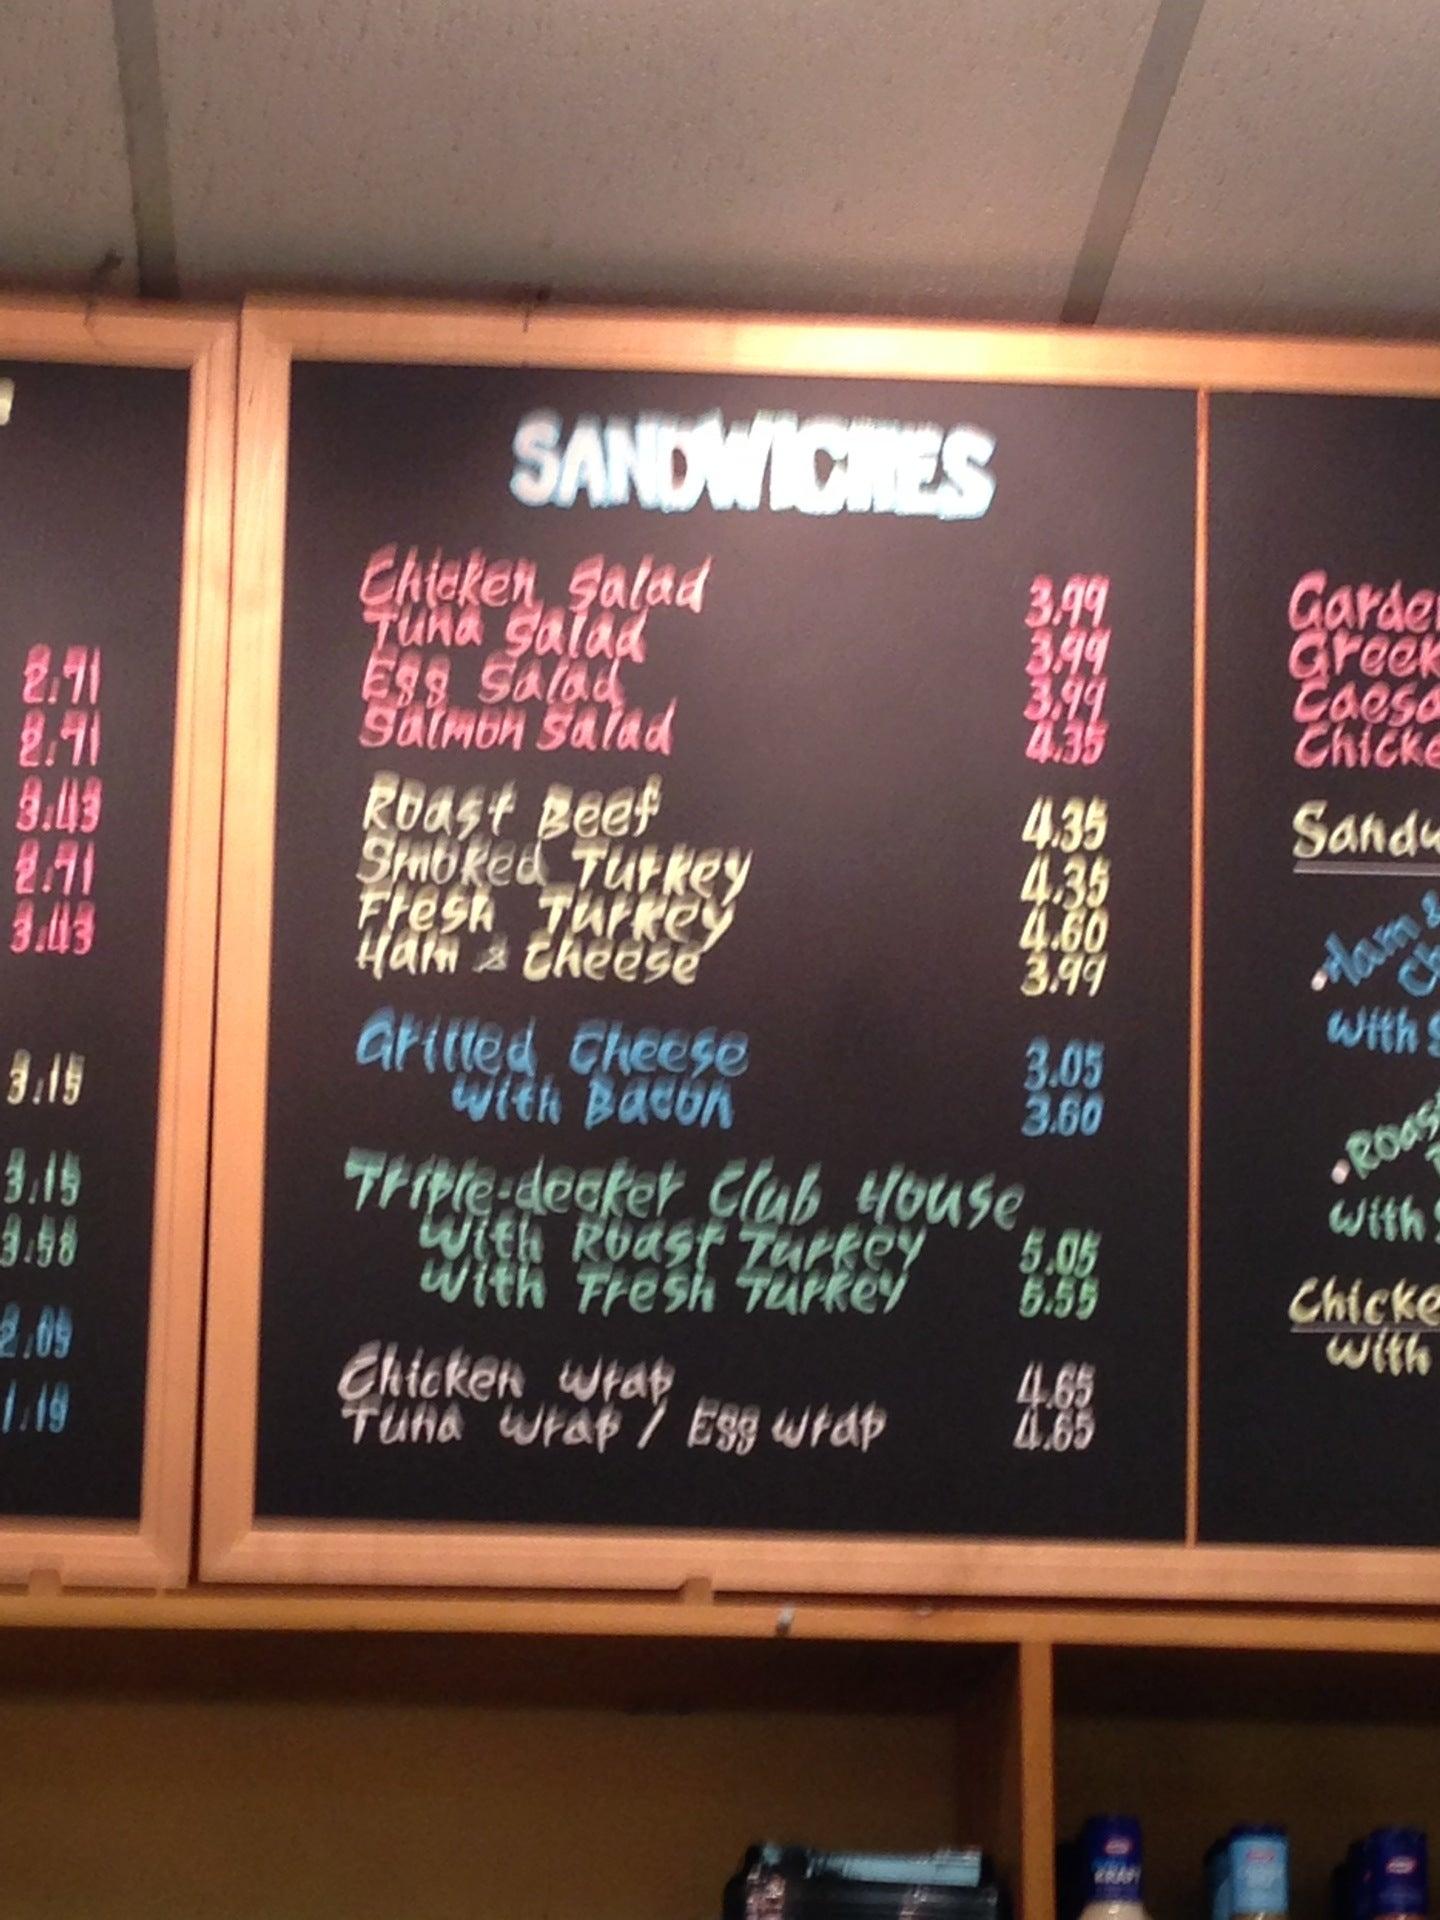 2.71
2.71
3.43
2.71
3.43
3.15
3.15
3.58
2.09
1.19
SANDWICHES
Chicken Salad 3.99
Tuna Salad 3.99
Egg Salad 3.99
Salmon Salad 4.35
Roast Beef 4.35
Smoked Turkey 4.35
Fresh Turkey 4.60
Ham & Cheese 3.99
Grilled Cheese 3.05
with Bacon 3.60
Triple-decker Club House
with Roast Turkey 5.05
with Fresh Turkey 5.55
Chicken Wrap 4.65
Tuna Wrap / Egg Wrap 4.65
Garde
Greek
Caesa
Chicke
Sandw
Ham &
Ch
with S
Roast
with S
Chicke
with
KRAFT